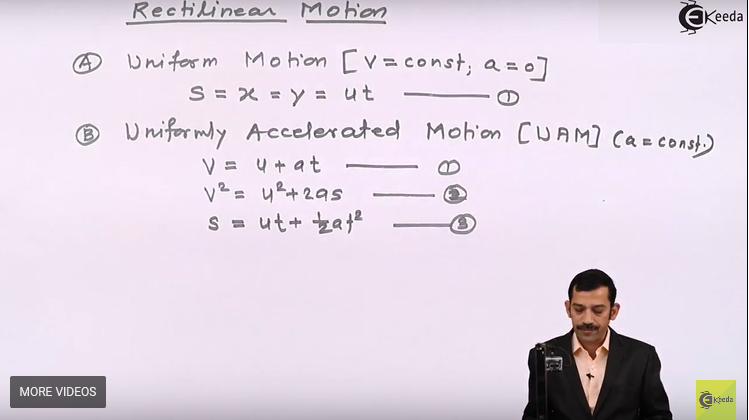 Rectilinear Motion
EKeeda
A Uniform Motion [V = const, a = 0]
S = x = y = ut ——— 1
B Uniformly Accelerated Motion [UAM] (a = const.)
V = u + at ——— 1
V² = u² + 2as ——— 2
S = ut + ½at² ——— 3
MORE VIDEOS
EKeeda